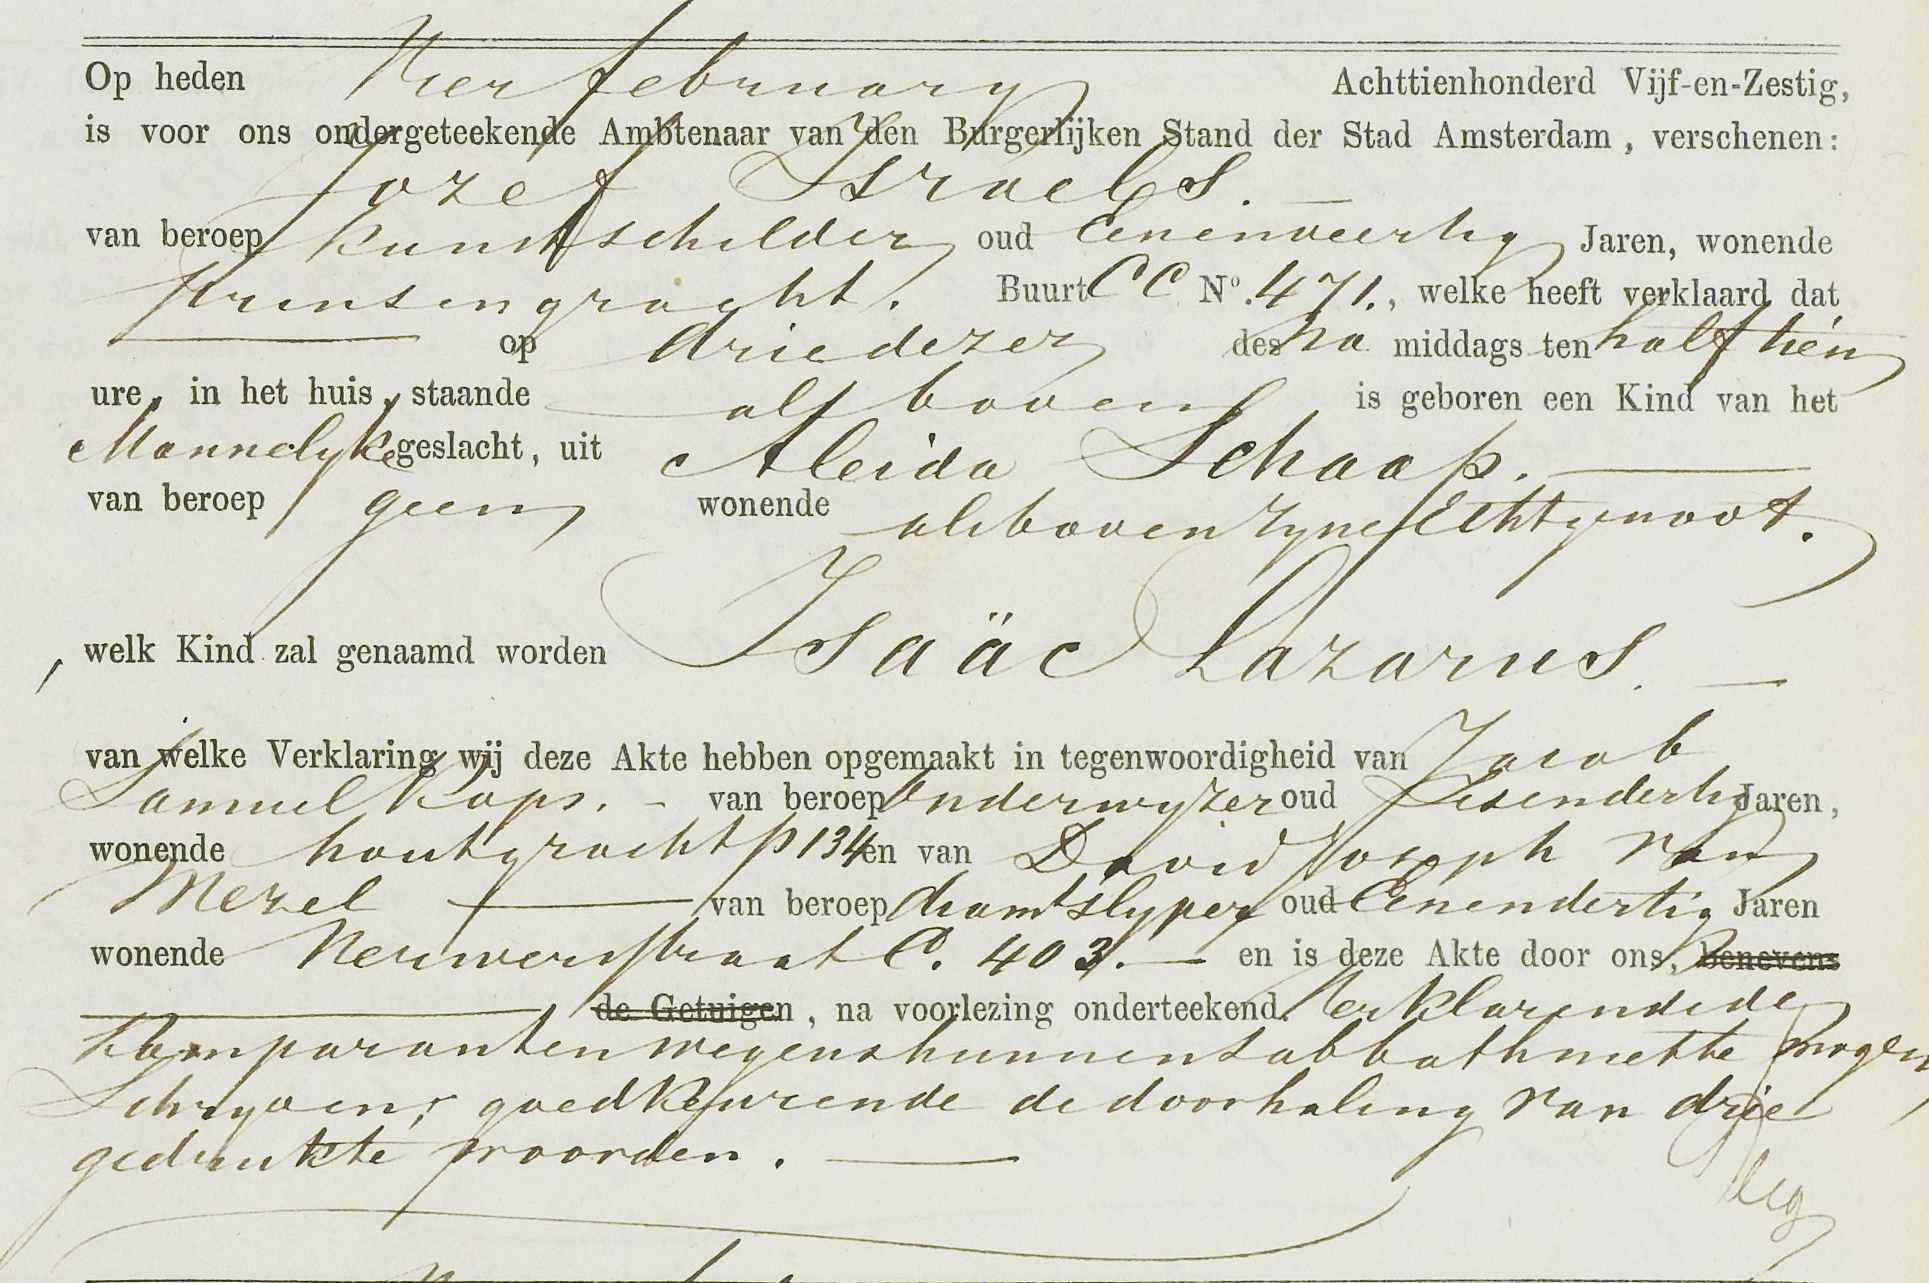 Op heden Vier february Achttienhonderd Vijf-en-Zestig,
is voor ons ondergeteekende Ambtenaar van den Burgerlijken Stand der Stad Amsterdam, verschenen:
Jozef Israels. —
van beroep kunstschilder oud Eenenveertig Jaren, wonende
Prinsengracht. Buurt CC No. 471., welke heeft verklaard dat
— op drie dezer des na middags ten half tien
ure, in het huis, staande als boven is geboren een Kind van het
Mannelyke geslacht, uit Aleida Schaap. —
van beroep geen wonende als boven zyne Echtgenoot.
, welk Kind zal genaamd worden Isaäc Lazarus. —
van welke Verklaring wij deze Akte hebben opgemaakt in tegenwoordigheid van Jacob
Samuel Kaps. - van beroep Onderwyzer oud Sesendertig Jaren,
wonende houtgracht P 134 en van David Joseph van
Mezel — van beroep diamtslyper oud Eenendertig Jaren
wonende Kerkstraat C. 403. — en is deze Akte door ons, benevens
— de Getuigen, na voorlezing onderteekend. Verklarende de
Komparanten wegens hunnen sabbath niette mogen
Schryven, goedkeurende de doorhaling van drie
gedrukte woorden. —